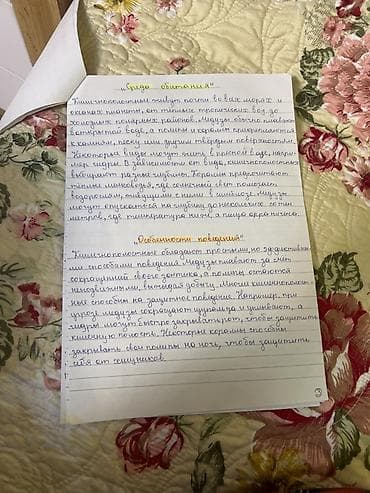 „Среда обитания"
Кишечнополостные живут почти во всех морях и
океанах планеты, от тёплых тропических вод до
холодных полярных районов. Медузы обычно плавают
в открытой воде, а полипы и кораллы прикрепляются
к камням, песку или другим твёрдым поверхностям.
Некоторые виды могут жить в пресной воде, напри-
мер гидры. В зависимости от вида, кишечнополостные
выбирают разные глубины. Кораллы предпочитают
тёплые мелководья, где солнечный свет помогает
водорослям, живущим с ними в симбиозе. Медузы
могут опускаться на глубину до нескольких сотен
метров, где температура ниже, а пища ограничена.
„Особенности поведений"
Кишечнополостные обладают простыми, но эффективны-
ми способами поведения. Медузы плавают за счёт
сокращений своего зонтика, а полипы остаются
неподвижными, выжидая добычу. Многие кишечнополост-
ные способны на защитное поведение. Например, при
угрозе медузы сокращают щупальца и уплывают, а
гидры могут быстро закрывать рот, чтобы защитить
кишечную полость. Некоторые кораллы способны
закрывать свои полипы на ночь, чтобы защитить
себя от хищников.